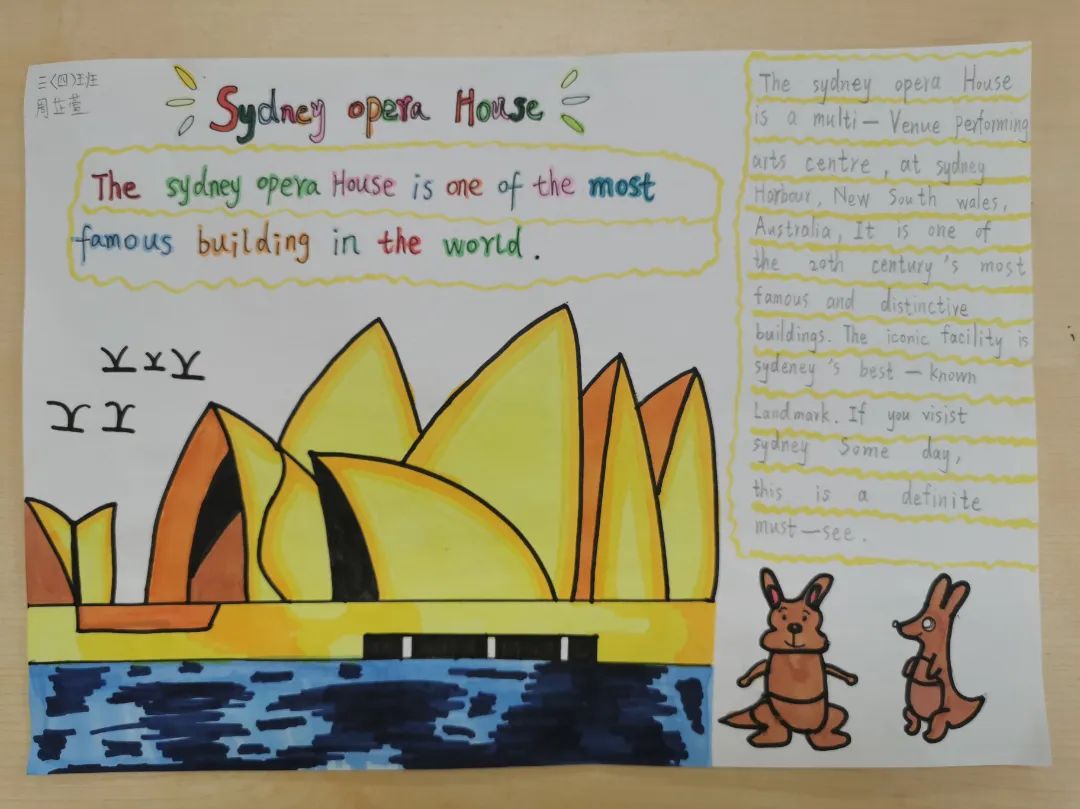 三(四)班
周芷萱
Sydney opera House
The sydney opera House is one of the most
famous building in the world.
The sydney opera House
is a multi-Venue Performing
arts centre, at sydney
Harbour, New South wales,
Australia, It is one of
the 20th century's most
famous and distinctive
buildings. The iconic facility is
sydeney's best-known
Landmark. If you visist
sydney Some day,
this is a definite
must-see.